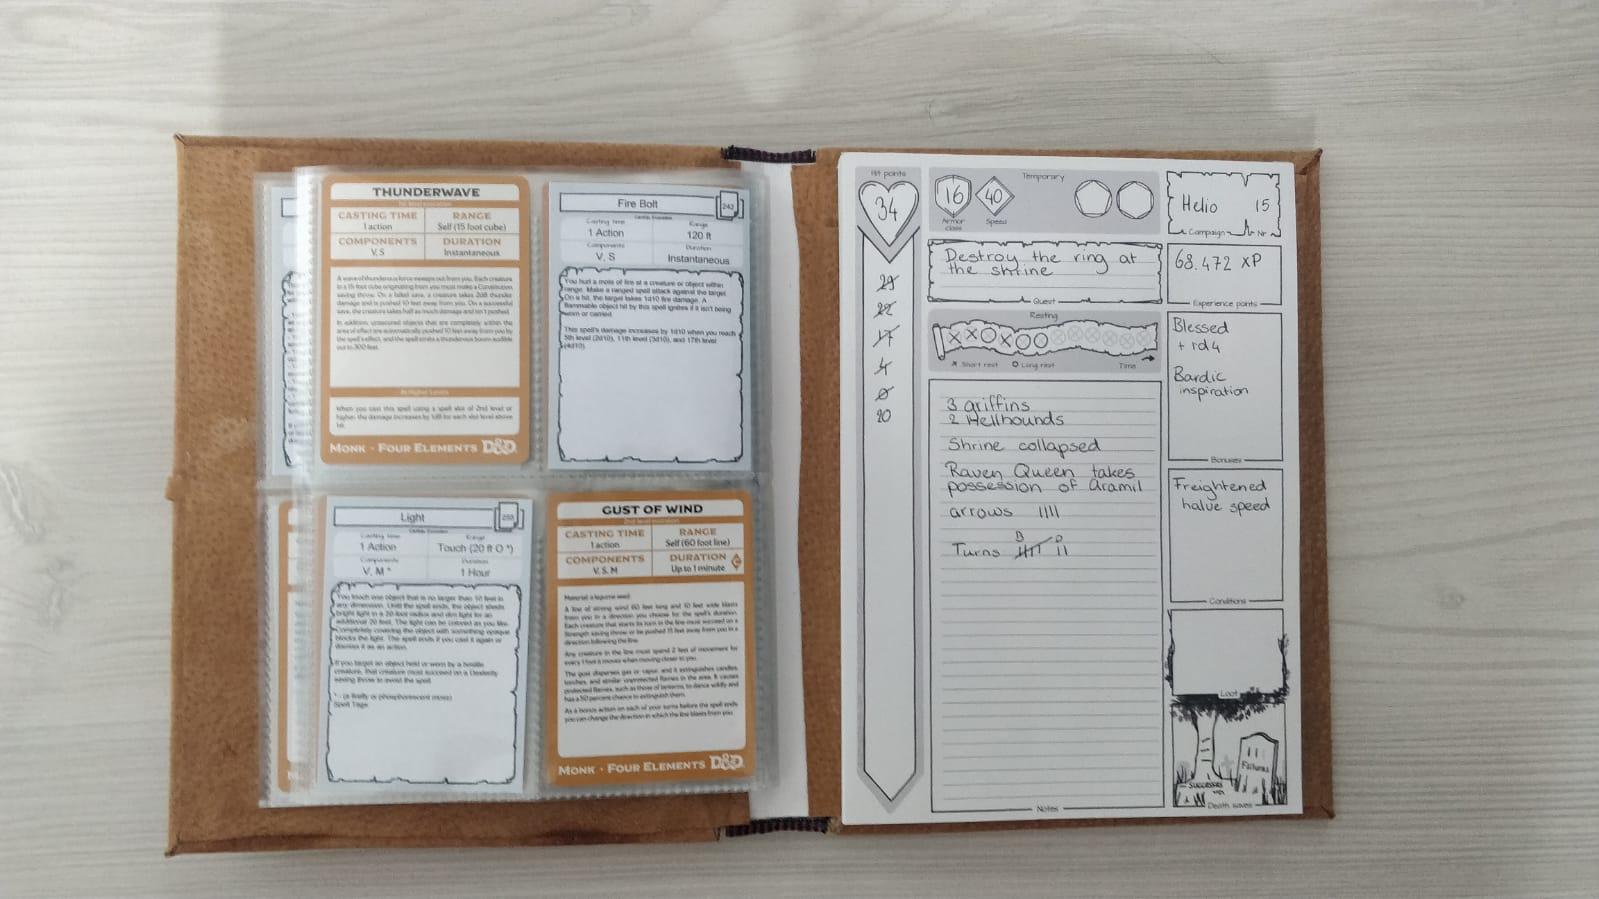 THUNDERWAVE
1st level evocation
CASTING TIME
1 action
RANGE
Self (15 foot cube)
COMPONENTS
V, S
DURATION
Instantaneous
A wave of thunderous force sweeps out from you. Each creature
in a 15 foot cube originating from you must make a Constitution
saving throw. On a failed save, a creature takes 2d8 thunder
damage and is pushed 10 feet away from you. On a successful
save, the creature takes half as much damage and isn't pushed.
In addition, unsecured objects that are completely within the
area of effect are automatically pushed 10 feet away from you by
the spell's effect, and the spell emits a thunderous boom audible
out to 300 feet.
At Higher Levels
When you cast this spell using a spell slot of 2nd level or
higher, the damage increases by 1d8 for each slot level above
1st.
MONK · FOUR ELEMENTS D&D
Fire Bolt
242
Cantrip, Evocation
Casting time
1 Action
Range
120 ft
Components
V, S
Duration
Instantaneous
You hurl a mote of fire at a creature or object within
range. Make a ranged spell attack against the target.
On a hit, the target takes 1d10 fire damage. A
flammable object hit by this spell ignites if it isn't being
worn or carried.
This spell's damage increases by 1d10 when you reach
5th level (2d10), 11th level (3d10), and 17th level
(4d10).
Light
255
Cantrip, Evocation
Casting time
1 Action
Range
Touch (20 ft O *)
Components
V, M *
Duration
1 Hour
You touch one object that is no larger than 10 feet in
any dimension. Until the spell ends, the object sheds
bright light in a 20-foot radius and dim light for an
additional 20 feet. The light can be colored as you like.
Completely covering the object with something opaque
blocks the light. The spell ends if you cast it again or
dismiss it as an action.
If you target an object held or worn by a hostile
creature, that creature must succeed on a Dexterity
saving throw to avoid the spell.
* - (a firefly or phosphorescent moss)
Spell Tags:
GUST OF WIND
2nd level evocation
CASTING TIME
1 action
RANGE
Self (60 foot line)
COMPONENTS
V, S, M
DURATION
Up to 1 minute
C
Material: a legume seed
A line of strong wind 60 feet long and 10 feet wide blasts
from you in a direction you choose for the spell's duration.
Each creature that starts its turn in the line must succeed on a
Strength saving throw or be pushed 15 feet away from you in a
direction following the line.
Any creature in the line must spend 2 feet of movement for
every 1 foot it moves when moving closer to you.
The gust disperses gas or vapor, and it extinguishes candles,
torches, and similar unprotected flames in the area. It causes
protected flames, such as those of lanterns, to dance wildly and
has a 50 percent chance to extinguish them.
As a bonus action on each of your turns before the spell ends,
you can change the direction in which the line blasts from you.
MONK · FOUR ELEMENTS D&D
Hit points
34
29
22
17
4
0
20
Temporary
16
Armor
class
40
Speed
Helio 15
Campaign Nr
Destroy the ring at
the shrine
Quest
68.472 XP
Experience points
Resting
Short rest
Long rest
Time
Blessed
+ 1d4
Bardic
inspiration
Bonuses
3 griffins
2 Hellhounds
Shrine collapsed
Raven Queen takes
possession of Aramil
arrows IIII
B D
Turns IIII II
Notes
Freightened
halve speed
Conditions
Loot
Successes
Failures
Death saves